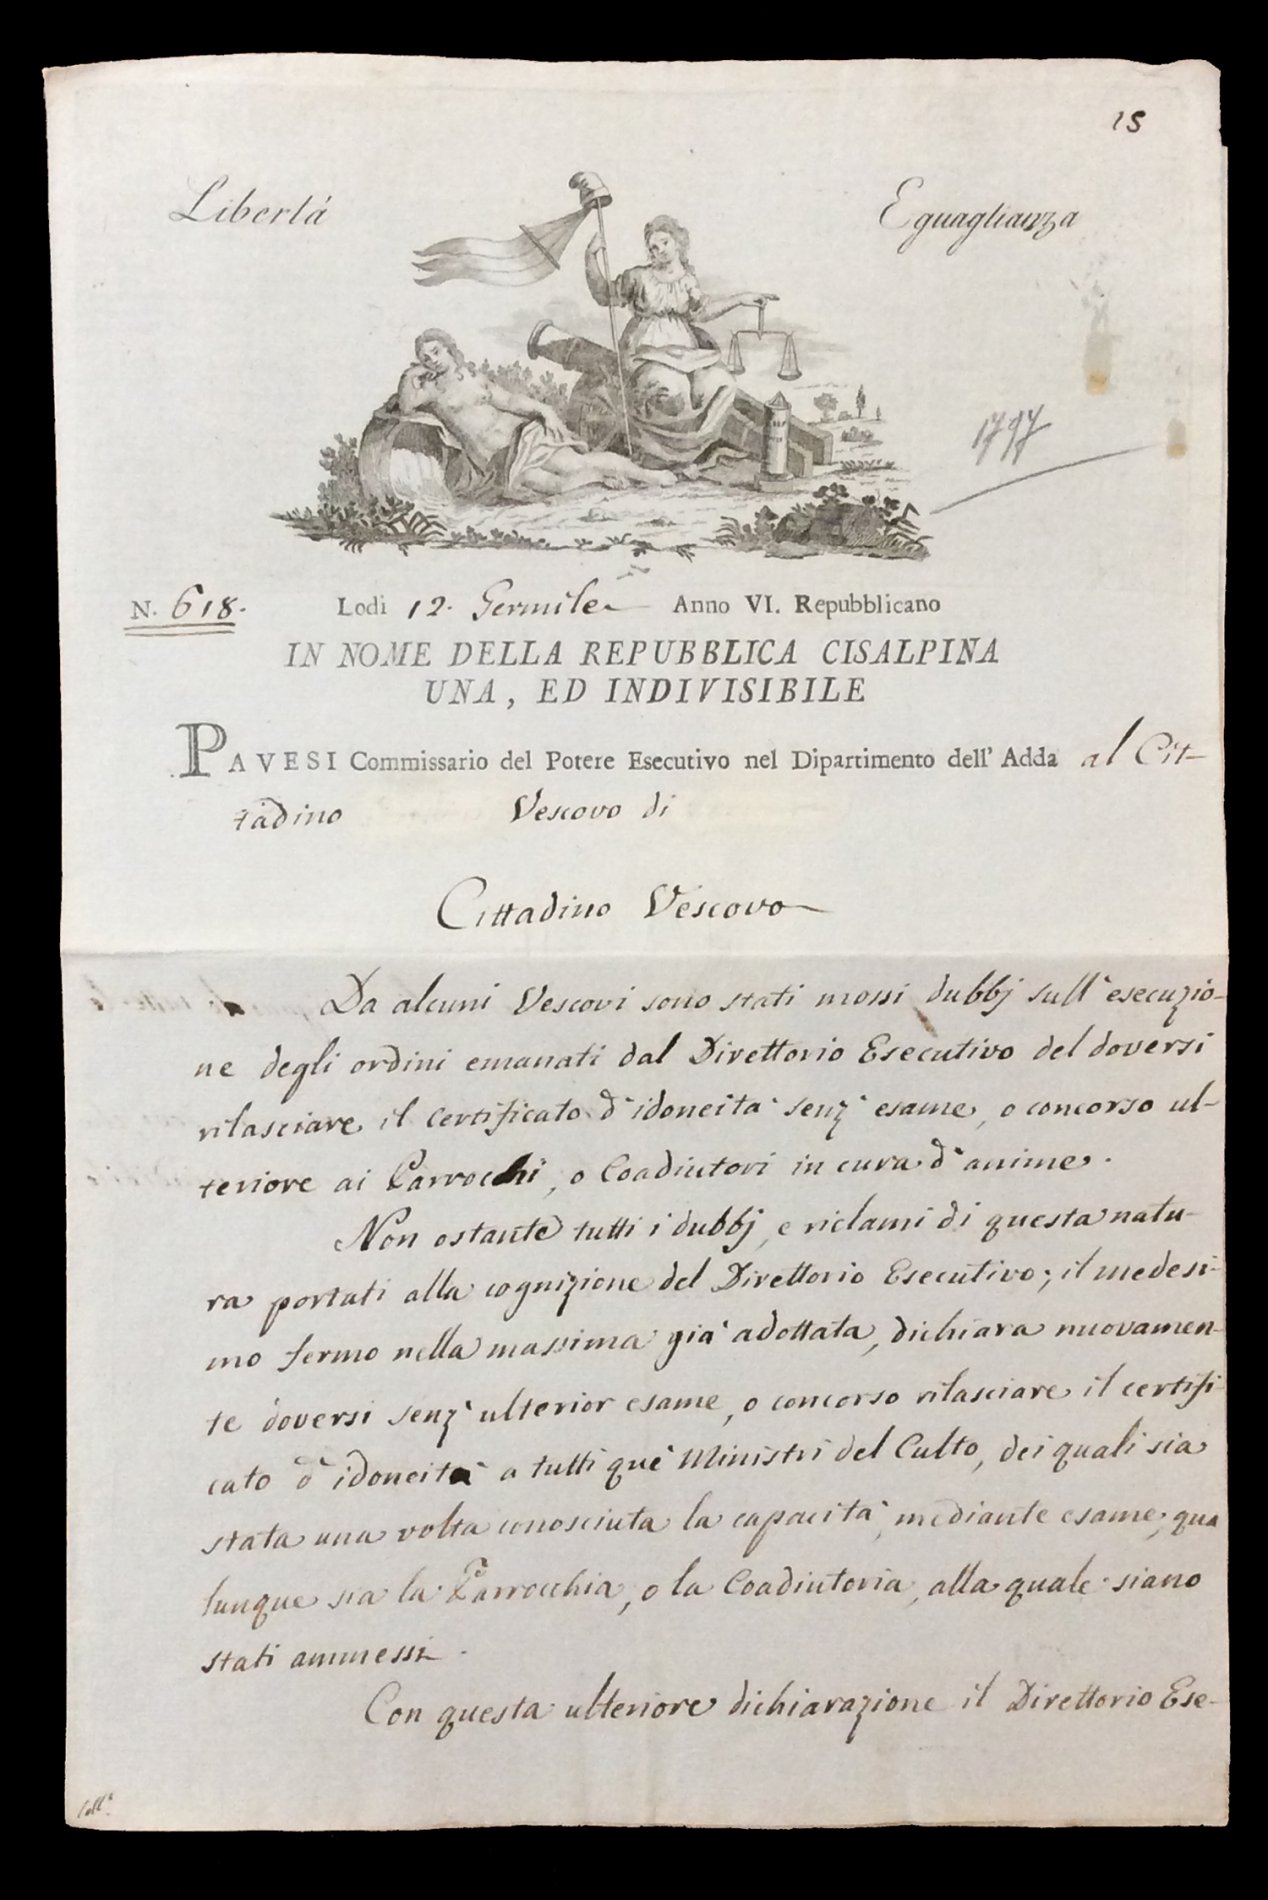 15
Libertà Eguaglianza
1797
N. 618. Lodi 12. Germile Anno VI. Repubblicano
IN NOME DELLA REPUBBLICA CISALPINA
UNA, ED INDIVISIBILE
PAVESI Commissario del Potere Esecutivo nel Dipartimento dell' Adda al Cit-
tadino Vescovo di
Cittadino Vescovo
Da alcuni Vescovi sono stati mossi dubbj sull' esecuzio-
ne degli ordini emanati dal Direttorio Esecutivo del doversi
rilasciare il certificato d' idoneita' senz' esame, o concorso ul-
teriore ai Parrochi, o Coadiutori in cura d' anime.
Non ostante tutti i dubbj, e riclami di questa natu-
ra portati alla cognizione del Direttorio Esecutivo; il medesi-
mo fermo nella massima già adottata, dichiara nuovamen-
te doversi senz' ulterior esame, o concorso rilasciare il certifi-
cato d' idoneità a tutti que' Ministri del Culto, dei quali sia
stata una volta conosciuta la capacita', mediante esame, qua
lunque sia la Parrocchia, o la Coadiutoria, alla quale siano
stati ammessi.
Con questa ulteriore dichiarazione il Direttorio Ese-